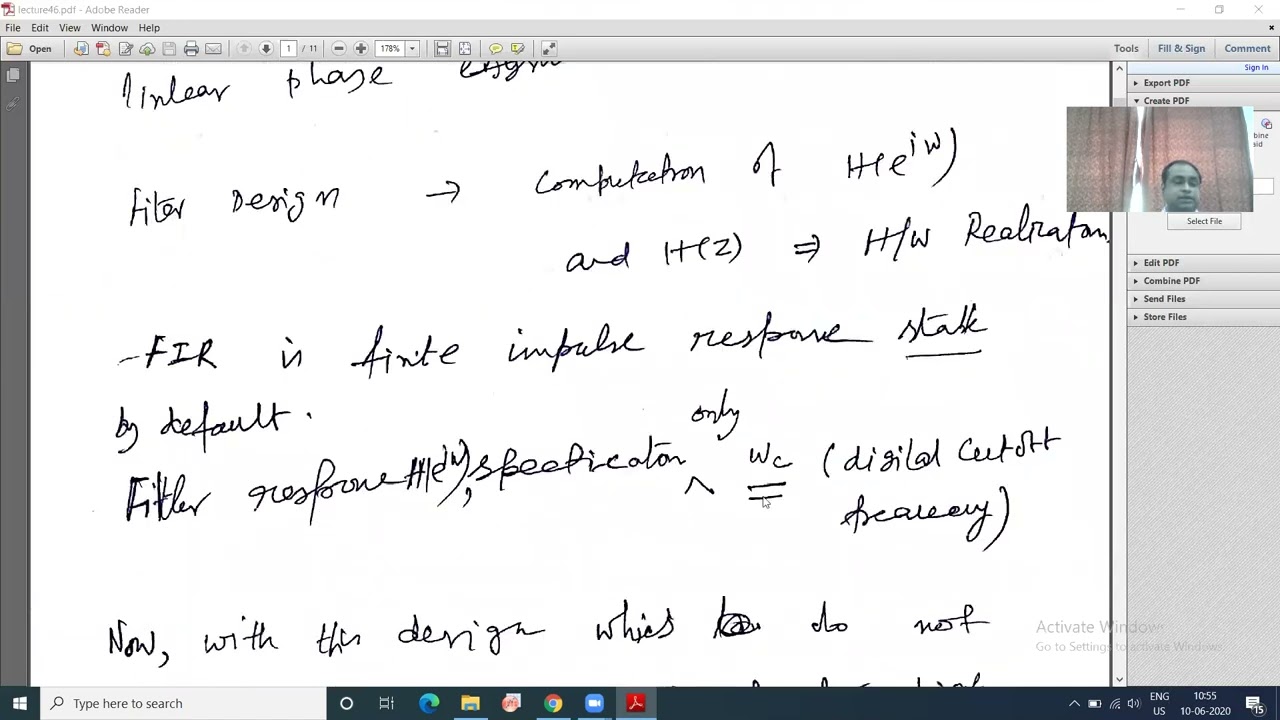 lecture46.pdf - Adobe Reader
File Edit View Window Help
Open 1 / 11 178% Tools Fill & Sign Comment
Sign In
Export PDF
Create PDF
Select File
Edit PDF
Combine PDF
Send Files
Store Files
linlear phase
Filter Design → Computation of H(e^jw)
and H(z) ⇒ H/W Realization
- FIR is finite impulse response stable
by default.
only
Filter response H(e^jw), specification ^ wc (digital cutoff
frequency)
Now, with this design which do not
Activate Windows
Go to Settings to activate Windows.
Type here to search
ENG
US
10:55
10-06-2020
15